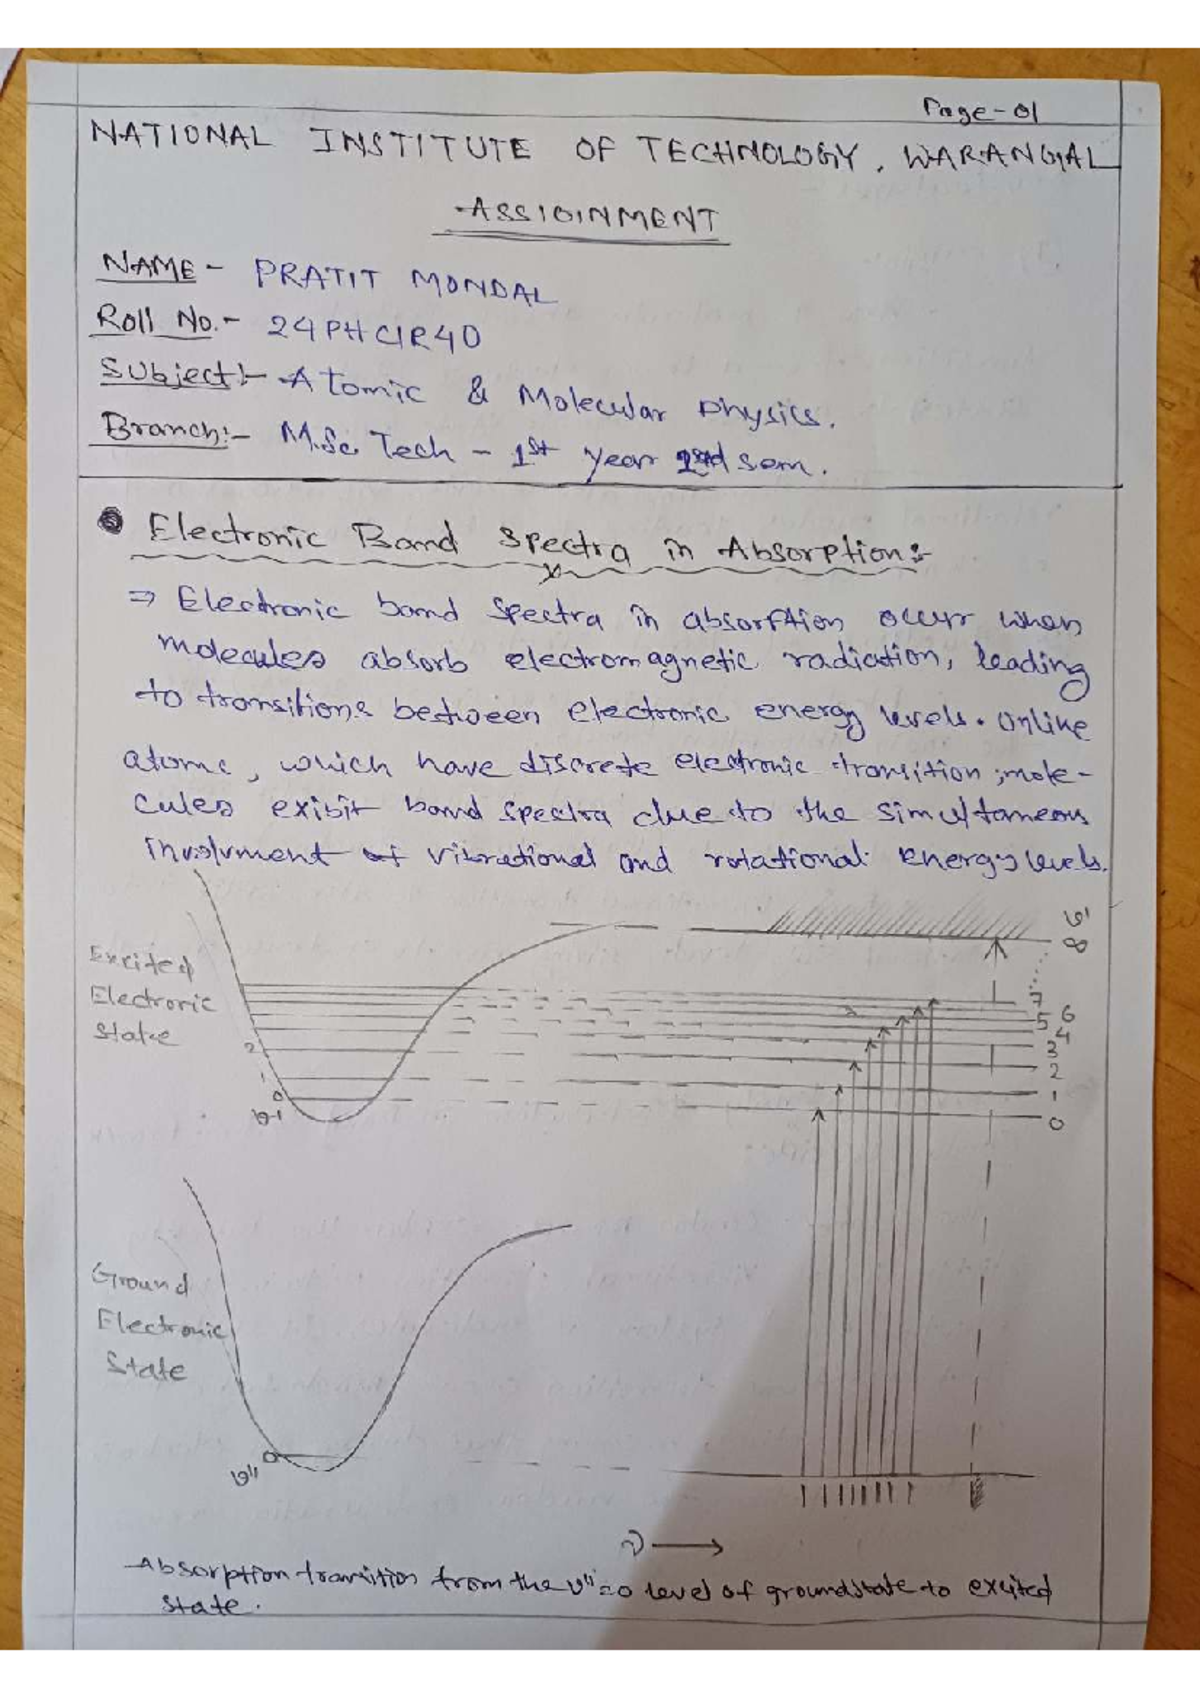 Page-01
NATIONAL INSTITUTE OF TECHNOLOGY, WARANGAL
ASSIGINMENT
NAME - PRATIT MONDAL
Roll No.- 24PHCIR40
Subject:- Atomic & Molecular Physics.
Branch:- M.Sc. Tech - 1st year 2nd sem.
Electronic Band Spectra in Absorption:-
⇒ Electronic band spectra in absorption occur when
molecules absorb electromagnetic radiation, leading
to transitions between electronic energy levels. Unlike
atoms, which have discrete electronic transition, mole-
cules exibit band spectra due to the simultaneous
involvment of vibrational and rotational energy levels.
v'
∞
Excited
Electronic
State
7
6
5
4
3
2
1
0
2
1
0
v'
Ground
Electronic
State
0
v''
ν →
Absorption transition from the v''=0 level of ground state to excited
state.